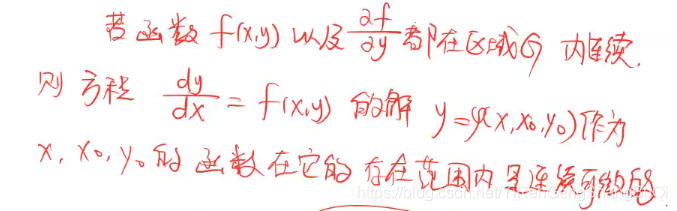 若函数 f(x,y) 以及 ∂f/∂y 都在区域G 内连续.
则 方程 dy/dx = f(x,y) 的解 y=φ(x,x₀,y₀)作为
x, x₀, y₀ 的 函数 在它的 存在范围内 是连续可微的
https://blog.csdn.net/